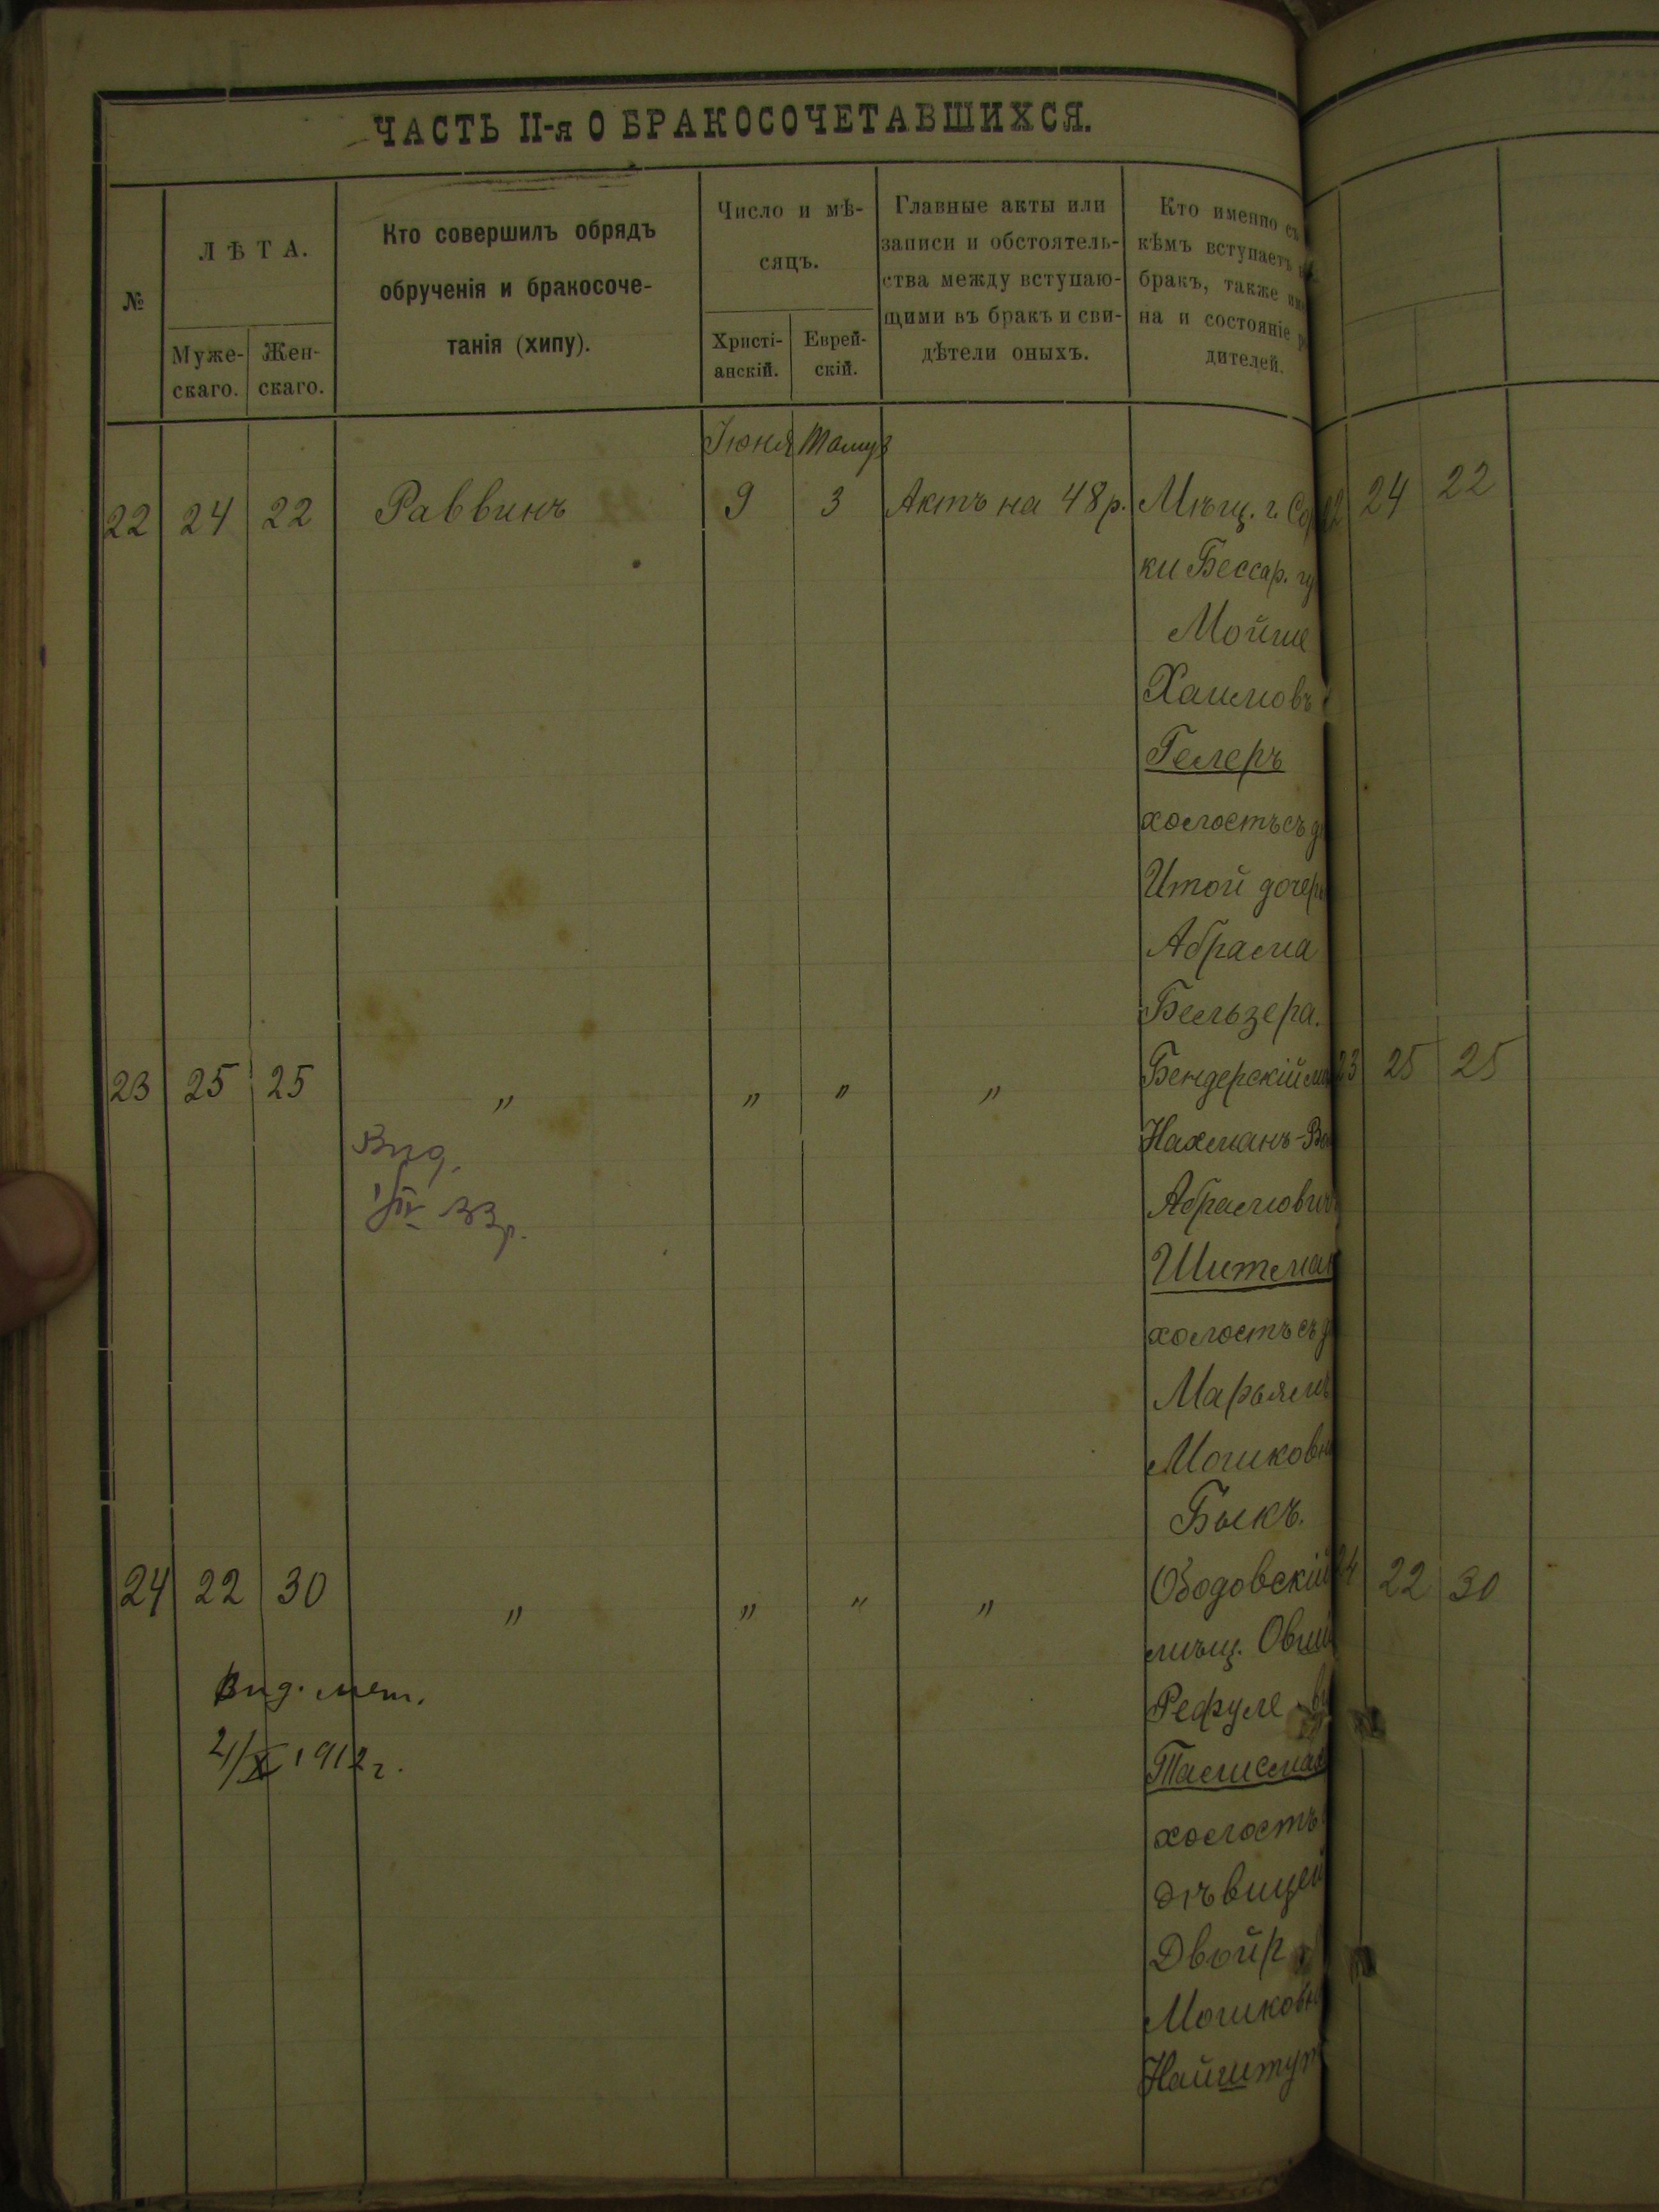 ЧАСТЬ II-я О БРАКОСОЧЕТАВШИХСЯ.
№
ЛѢТА.
Муже-
скаго.
Жен-
скаго.
Кто совершилъ обрядъ
обрученія и бракосоче-
танія (хипу).
Число и мѣ-
сяцъ.
Христі-
анскій.
Еврей-
скій.
Главные акты или
записи и обстоятель-
ства между вступаю-
щими въ бракъ и сви-
дѣтели оныхъ.
Кто именно съ
кѣмъ вступаетъ
бракъ, также
на и состояніе
дителей.
Іюня Тамуз
22 24 22 Раввинъ 9 3 Актъ на 48 р. Мѣщ. г. Со
ки Бессар.
Мойше
Хаимовъ
Гелеръ
холостъ съ
Итой дочер
Абрама
Бельзера.
23 25 25 „ „ „ „ Бендерскій
Нахманъ-
Абрамович
Шитман
холостъ съ
Марьям
Мошков
Быкъ.
Выд.
24 22 30 „ „ „ „ Ободовскій
мѣщ. Овш
Рефул
Талисма
холостъ
дѣвицей
Двойр
Мошков
Найшту
Выд. мет.
2/X 1912 г.
22 24 22
23 25 25
24 22 30